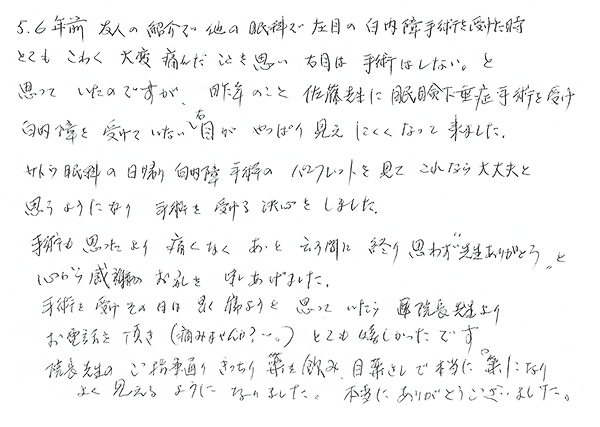 5.6年前 友人の紹介で他の眼科で左目の白内障手術を受けた時
とても こわく 大変 痛んだことを思い 右目は 手術はしない。と
思って いたのですが、 昨年のこと 佐藤先生に眼瞼下垂症手術を受け
白内障を 受けていない右目が やっぱり見えにくくなって来ました。
サトウ眼科の日帰り白内障手術の パンフレットを見て これなら大丈夫と
思うようになり 手術を 受ける 決心をしました。
手術も 思ったより 痛くなく あっと 云う間に 終り 思わず"先生ありがとう"と
心から感謝の お礼を 申しあげました。
手術を 受け その日は 早く 寝ようと 思って いたら 院長先生より
お電話を 頂き (痛みませんか?〜。) とても嬉しかったです
院長先生の ご指導通り きっちり 薬を飲み、目薬さしで本当に"楽"になり
よく 見える ように なりました。 本当に ありがとうございました。